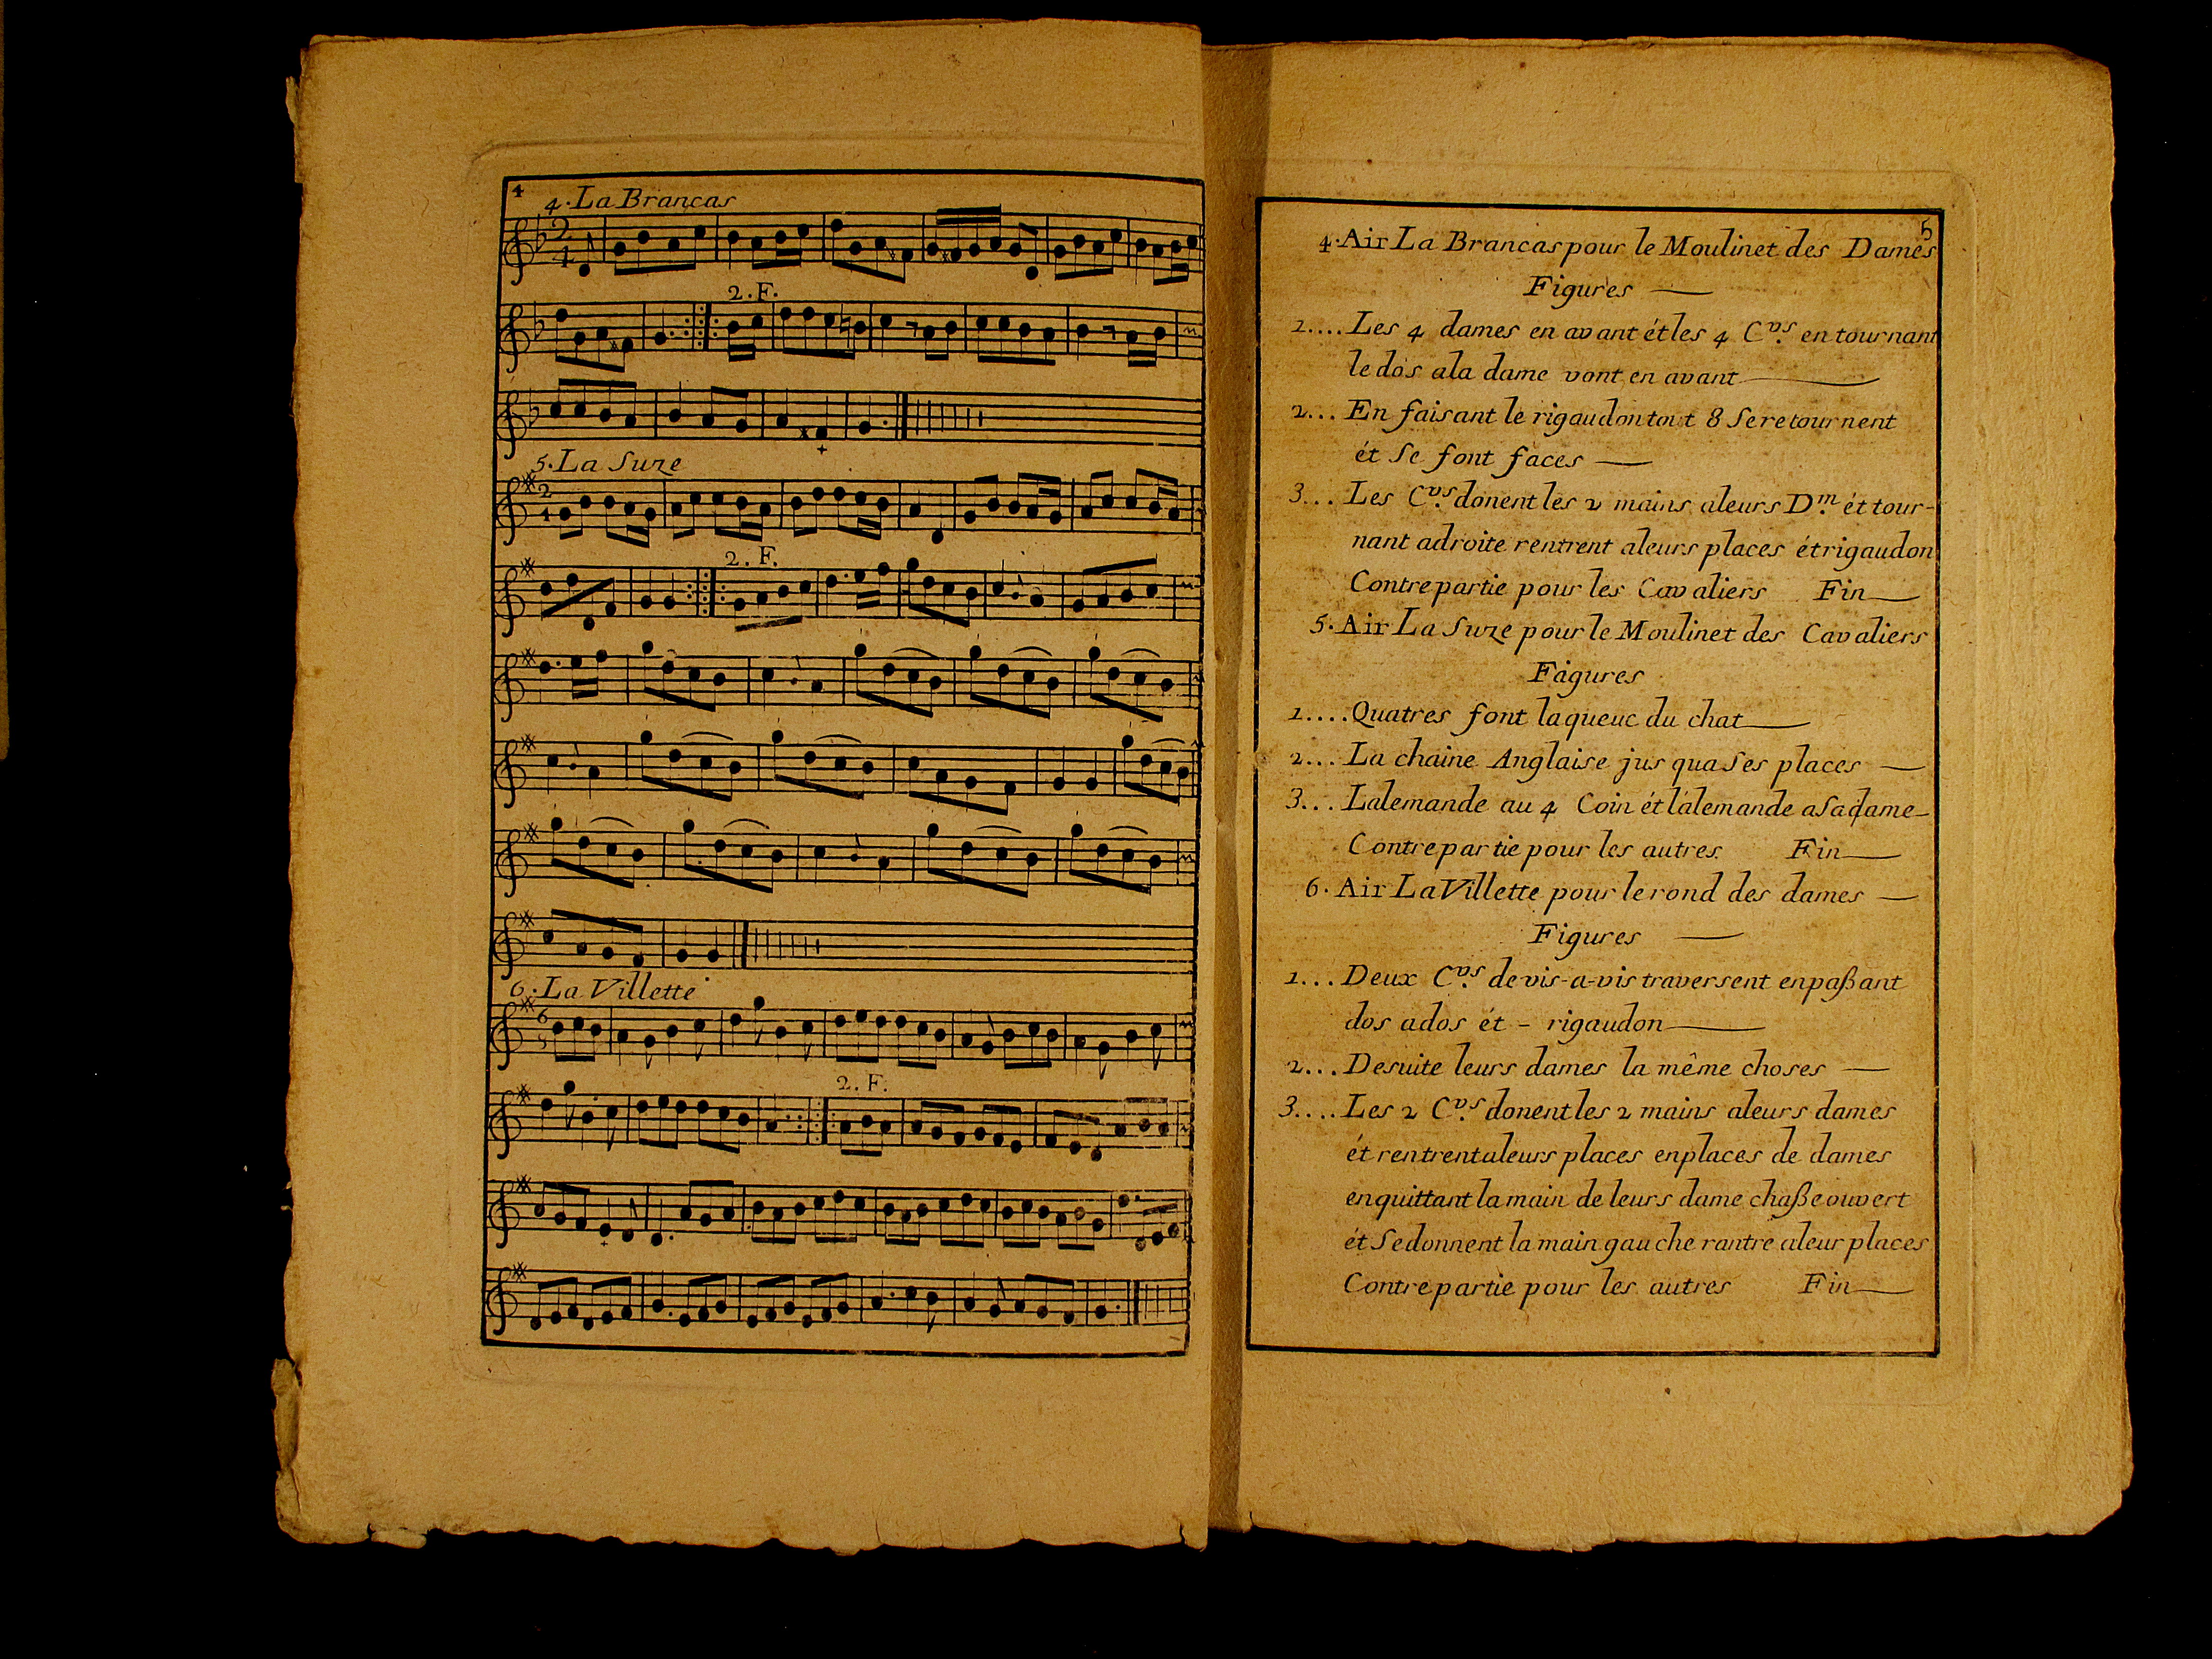 4
4. La Brancas
2/4
2. F.
5. La Suze
2/4
2. F.
6. La Villette
6/8
2. F.
5
4. Air La Brancas pour le Moulinet des Dames
Figures —
1.... Les 4 dames en avant ét les 4 C.vrs en tournant
le dos ala dame vont en avant —
2... En faisant le rigaudon tout 8 Se retournent
ét Se font faces —
3... Les C.vrs donent les 2 mains aleurs D.m ét tour-
nant adroite rentrent aleurs places ét rigaudon
Contre partie pour les Cavaliers Fin —
5. Air La Suze pour le Moulinet des Cavaliers
Fagures
1.... Quatres font la queue du chat —
2... La chaine Anglaise jus qua Ses places —
3... Lalemande au 4 Coin ét lálemande a Sa dame —
Contre partie pour les autres. Fin —
6. Air La Villette pour le rond des dames —
Figures —
1... Deux C.vrs de vis-a-vis traversent enpaßant
dos ados ét - rigaudon —
2... Desuite leurs dames la même choses —
3.... Les 2 C.vrs donent les 2 mains aleurs dames
ét rentrent aleurs places enplaces de dames
enquittant la main de leurs dame chaße ouvert
ét Se donnent la main gauche rantre aleur places
Contre partie pour les autres Fin —